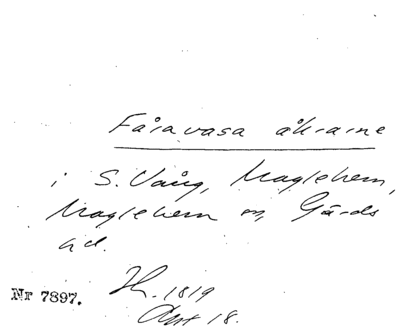 Fåravasa åkrarne
i S. Vång, Maglehem,
Maglehem sn, Gärds
hd.
Nr 7897.
H. 1819
Akt 18.